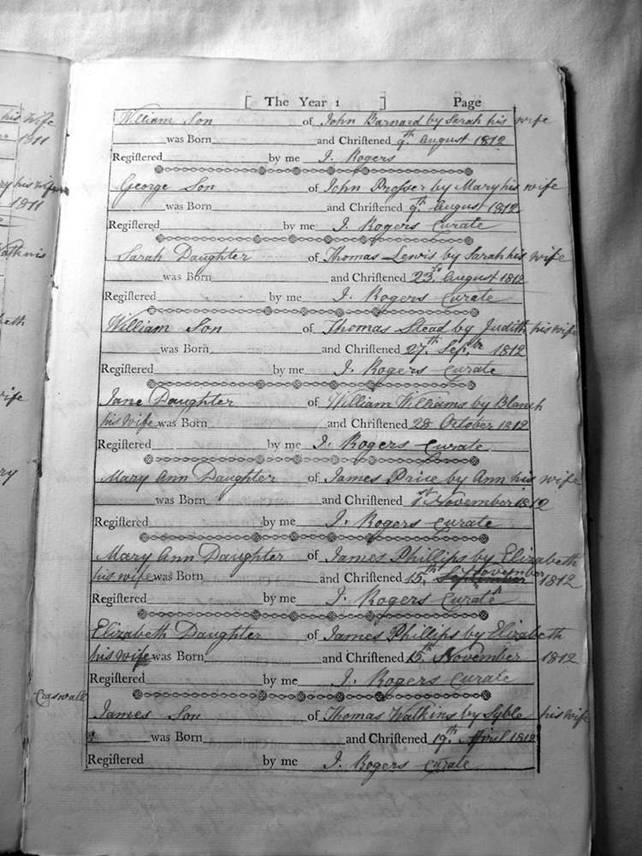 [ The Year 1 ] Page
William Son of John Barnard by Sarah his wife
was Born and Chriſtened 9th August 1812
Regiſtered by me J. Rogers
George Son of John Prosser by Mary his wife
was Born and Chriſtened 9th August 1812
Regiſtered by me J. Rogers Curate
Sarah Daughter of Thomas Lewis by Sarah his wife
was Born and Chriſtened 23rd August 1812
Regiſtered by me J. Rogers Curate
William Son of Thomas Stead by Judith his wife
was Born and Chriſtened 27th Sepbr 1812
Regiſtered by me J. Rogers Curate
Jane Daughter of William Williams by Blanch
his wife was Born and Chriſtened 28 October 1812
Regiſtered by me J. Rogers Curate
Mary Ann Daughter of James Price by Ann his wife
was Born and Chriſtened 1st November 1812
Regiſtered by me J. Rogers Curate
Mary Ann Daughter of James Phillips by Elizabeth
his wife was Born and Chriſtened 15th September November 1812
Regiſtered by me J. Rogers Curate
Elizabeth Daughter of James Phillips by Elizabeth
his wife was Born and Chriſtened 15th November 1812
Regiſtered by me J. Rogers Curate
James Son of Thomas Watkins by Syble his wife
was Born and Chriſtened 19th April 1812
Regiſtered by me J. Rogers Curate
his Wife
1811
his wife
1811
Watkins